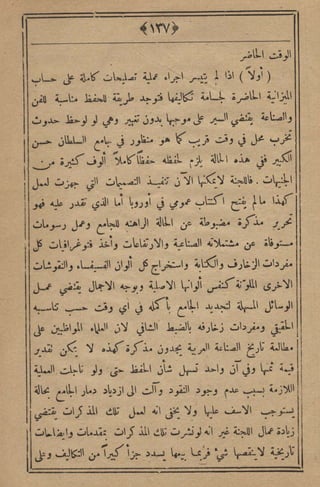 ﴿١٣٧﴾
الوقت الحاضر
( أولاً ) اذا لم يتيسر اجراء عملية تصليحات كاملة على حساب
الميزانية الحاضرة لجسامة تكاليفها فتوجد طريقة للحفظ مناسبة للفن
والصناعة يقتضي السير على موجبها بدون تغيير وهي لو لوحظ حدوث
تخرب محل في وقت قريب كما هو منظور في جامع السلطان حسن
الكبير ففي هذه الحالة يلزم لحفظه حفظاً كاملاً ألوف كثيرة من
الجنيهات . فاللجنة لا يمكنها الآن تنفيذ التصميمات التي جهزت لعمل
كهذا ما لم يفتح اكتتاب عمومي في أوروبا أما الذي تقدر عليه فهو
تحرير مذكرة مضبوطة عن الحالة الراهنه للجامع وعمل رسومات
مستوفاة عن مشتملاته الصناعية والارتفاعات وأخذ فتوغرافيات كل
مفردات الزخارف والكتابة واستخراج كل ألوان الفسيفساء والنقوشات
الاخرى الملونة كنفس ألوانها الاصلية وبوجه الاجمال يقتضي عمل
الوسائل المسهلة لتجديد الجامع بأكمله في اي وقت حسب تناسبه
الحقيقي ومفردات زخارفه بالضبط الشافي لان العلماء المواظبين على
مطالعة تاريخ الصناعة العربية يجدون مذكرة كهذه لا يمكن تقدير
قيمة ثمنها وفي آن واحد تسهل شأن الحفظ حتى ولو تأجلت العملية
اللازمة بسبب عدم وجود النقود وآلت الى ازدياد دمار الجامع بحالة
يستوجب الاسف عليها ولا يخفى انه لعمل تلك المذكرات يقتضي
زيادة عمال اللجنة غير انه لو نشرت تلك المذكرات بمقدمات وايضاحات
تاريخية لا ينقصها شئ فربما بيعها يسدد جزأ كبيراً من التكاليف وعلى